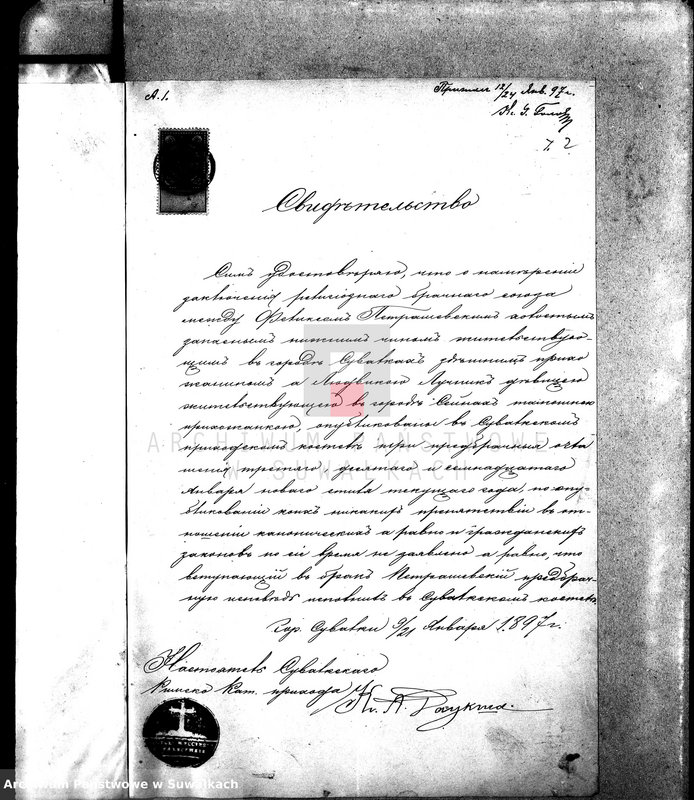 А. 1.
Пришли 12/24 Янв. 97 г.
Кс.
7. 2
Свидѣтельство
Симъ удостовѣряю, что о намѣреніи
заключенія религіознаго брачнаго союза
между Феликсомъ Петрашевскимъ холостымъ
запаснымъ нижнимъ чиномъ жительствую-
щимъ въ городѣ Сувалкахъ здѣшнимъ прихо
жаниномъ а Людвикою Лучникъ дѣвицею
жительствующею въ городѣ Сейнахъ тамошнею
прихожанкою, опубликованы въ Сувалкскомъ
приходскомъ костелѣ три предбрачныя огла
шенія третьяго, десятаго и семнадцатаго
Января новаго стиля текущаго года, по опу-
бликованіи коихъ никакихъ препятствій въ от-
ношеніи каноническихъ а равно и гражданскихъ
законовъ по сіе время не заявлено а равно, что
вступающій въ бракъ Петрашевскій предбрач-
ную исповѣдь исполнилъ въ Сувалкскомъ костелѣ.
Гор. Сувалки 9/21 Января 1897 г.
Настоятель Сувалкскаго
Римско Кат. прихода Кс. А.
ARCHIWUM PAŃSTWOWE
W SUWAŁKACH
Archiwum Państwowe w Suwałkach